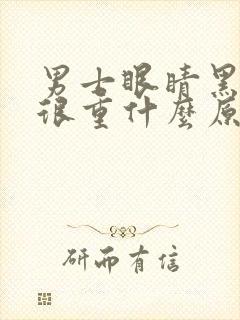 男士眼睛黑
很重什麼原
研而有信